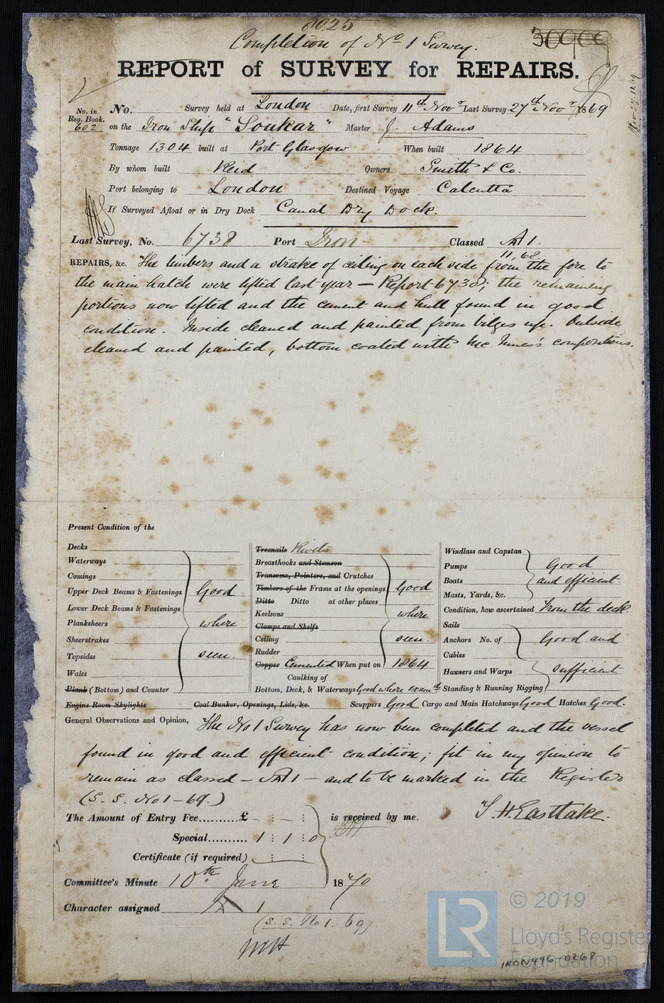 6025
Completion of No 1 Survey.
30900
REPORT of SURVEY for REPAIRS.
No. in Reg. Book. 602
No. Survey held at London Date, first Survey 11th Novr Last Survey 27th Novr 1869
on the Iron Ship "Soukar" Master J. Adams
Tonnage 1304 built at Port Glasgow When built 1864
By whom built Reid Owners Smith & Co.
Port belonging to London Destined Voyage Calcutta
If Surveyed Afloat or in Dry Dock Canal Dry Dock.
Last Survey, No. 6738 Port Iron Classed A1.
11,68
REPAIRS, &c. The limbers and a strake of ceiling on each side from the fore to
the main hatch were lifted last year – Report 6738; the remaining
portions now lifted and the cement and hull found in good
condition. Inside cleaned and painted from bilges up. Outside
cleaned and painted, bottom coated with Mc Innes's composition.
Present Condition of the
Decks
Waterways
Comings
Upper Deck Beams & Fastenings Good
Lower Deck Beams & Fastenings
Planksheers where
Sheerstrakes
Topsides seen.
Wales
Plank (Bottom) and Counter
Treenails Rivets
Breasthooks and Stemson
Transoms, Pointers, and Crutches
Timbers of the Frame at the openings Good
Ditto Ditto at other places
Keelsons where
Clamps and Shelfs
Ceiling seen.
Rudder
Copper Cemented When put on 1864
Caulking of
Bottom, Deck, & Waterways Good where exam'd
Windlass and Capstan
Pumps Good
Boats and efficient.
Masts, Yards, &c.
Condition, how ascertained From the deck
Sails
Anchors No. of Good and
Cables
Hawsers and Warps sufficient
Standing & Running Rigging
Engine Room Skylights Coal Bunker, Openings, Lids, &c. Scuppers Good Cargo and Main Hatchways Good Hatches Good.
General Observations and Opinion, The No 1 Survey has now been completed and the vessel
found in good and efficient condition; fit in my opinion to
remain as classed – A1 – and to be marked in the Register
(S.S. No 1 – 69.)
The Amount of Entry Fee.......... £ is received by me,
Special.......... 1 : 1 : 0
T. H. Eastlake.
Certificate (if required)
Committee's Minute 10th June 1870
Character assigned A 1
(S.S. No 1. 69)
MH
LR
© 2019
Lloyd's Register
Foundation
IRON496-0268